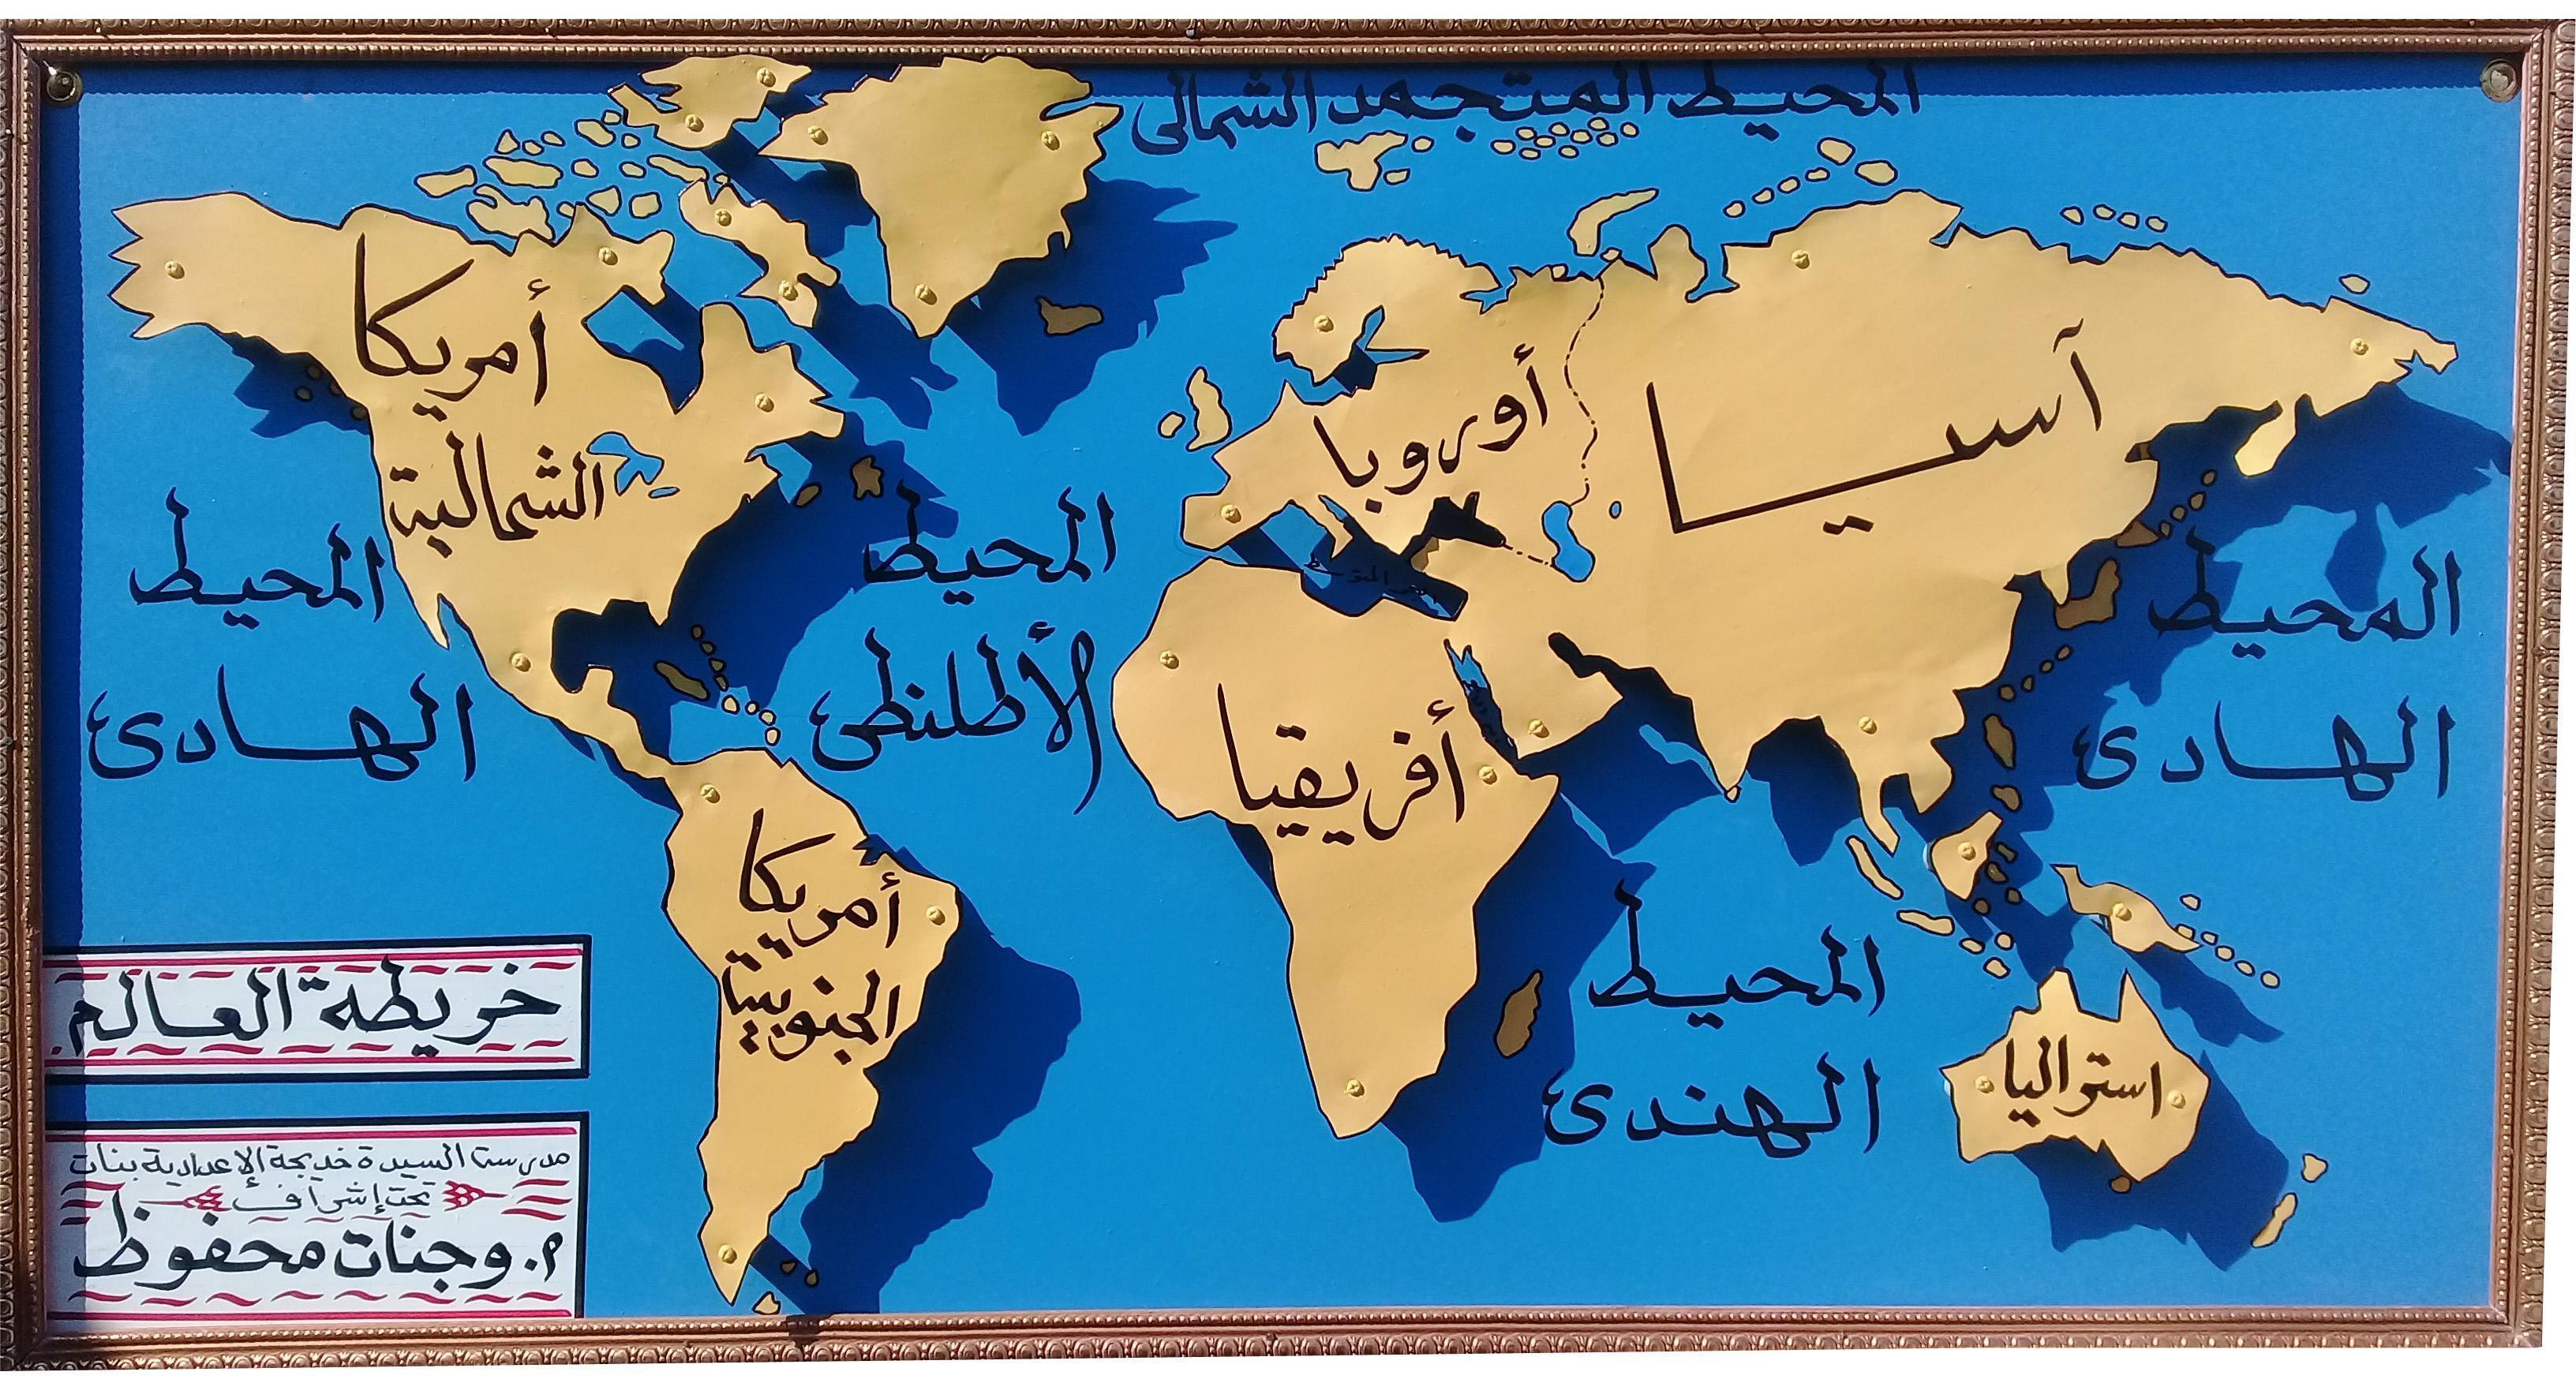 المحيط المتجمد الشمالى
أمريكا
الشمالية
أوروبا
آسيا
المحيط
الهادئ
المحيط
الأطلنطى
المحيط
الهادئ
أفريقيا
أمريكا
الجنوبية
المحيط
الهندى
استراليا
خريطة العالم
مدرسة السيدة خديجة الإعدادية بنات
تحت إشراف
م. وجنات محفوظ